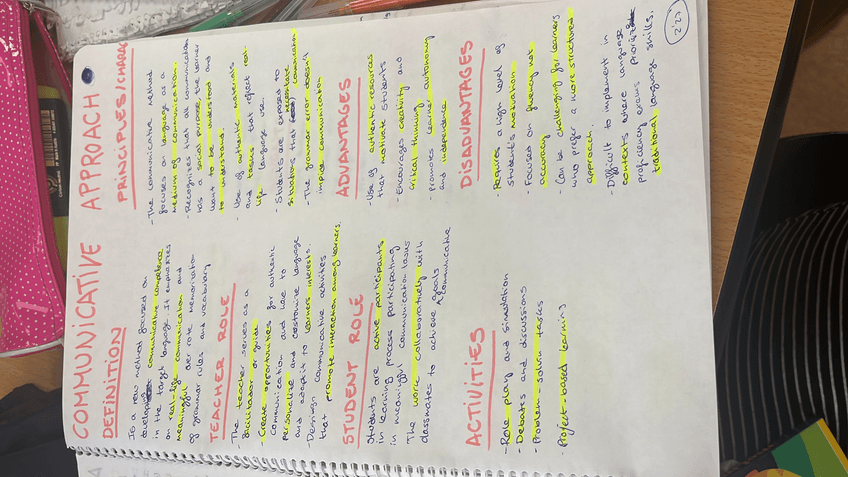 COMMUNICATIVE APPROACH
DEFINITION
Is a new method focused on
developing communicative competence
in the target language. It emphasizes
on real-life communication and
meaningful over rote memorization
of grammar rules and vocabulary
TEACHER ROLE
- The teacher serves as a
facilitator or guide
- Create opportunities for authentic
communication and have to
personalize and costumise language
and adapt it to learners interests.
- Designs communicative activities
that promote interaction among learners.
STUDENT ROLE
Students are active participants
in learning process participating
in meaningful communication tasks
The work collaboratively with
classmates to achieve communicative goals
ACTIVITIES
- Role-play and simulation
- Debates and discussions
- Problem-solvin tasks
Project-based learning
PRINCIPLES/CHARAC
- The communicative method
focuses on language as a
medium of communication.
- Recognizes that all communication
has a social purpose, the learner
want to be understood and
to understand.
- Use of authentic materials
and that reflect real-
life language use.
- Students are exposed to
situations that necessitate communication
- The grammar error doesn't
impide communication
ADVANTAGES
- Use of authentic resources
that motivate students
- Encourages creativity and
critical thinking
- promotes learner autonomy
and independence
DISADVANTAGES
- Requires a high level of
student's motivation.
- Focused on fluency not
accuracy
- Can be challenging for learners
who prefer a more structured
approach.
- Difficult to implement in
contexts where language
proficiency exams prioritize
traditional language skills.
2'27